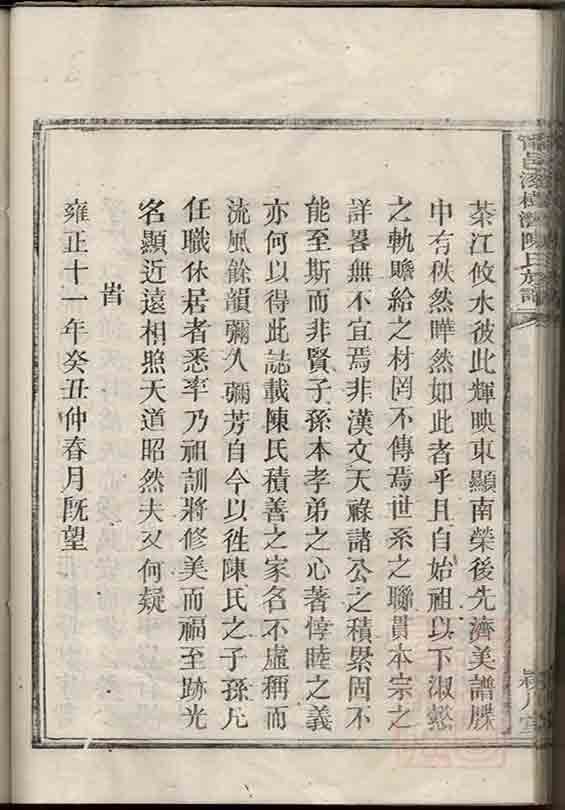 茶江攸水彼此輝映東顯南榮後先濟美譜牒
中有秩然曄然如此者乎且自始祖以下淑懿
之軌贍給之材罔不傳焉世系之聯貫本宗之
詳畧無不宜焉非漢文天祿諸公之積累固不
能至斯而非賢子孫本孝弟之心著惇睦之義
亦何以得此誌載陳氏積善之家名不虛稱而
流風餘韻彌久彌芳自今以徃陳氏之子孫凡
任職休居者悉率乃祖訓將修美而福至跡光
名顯近遠相照天道昭然夫又何疑
旹
雍正十一年癸丑仲春月既望